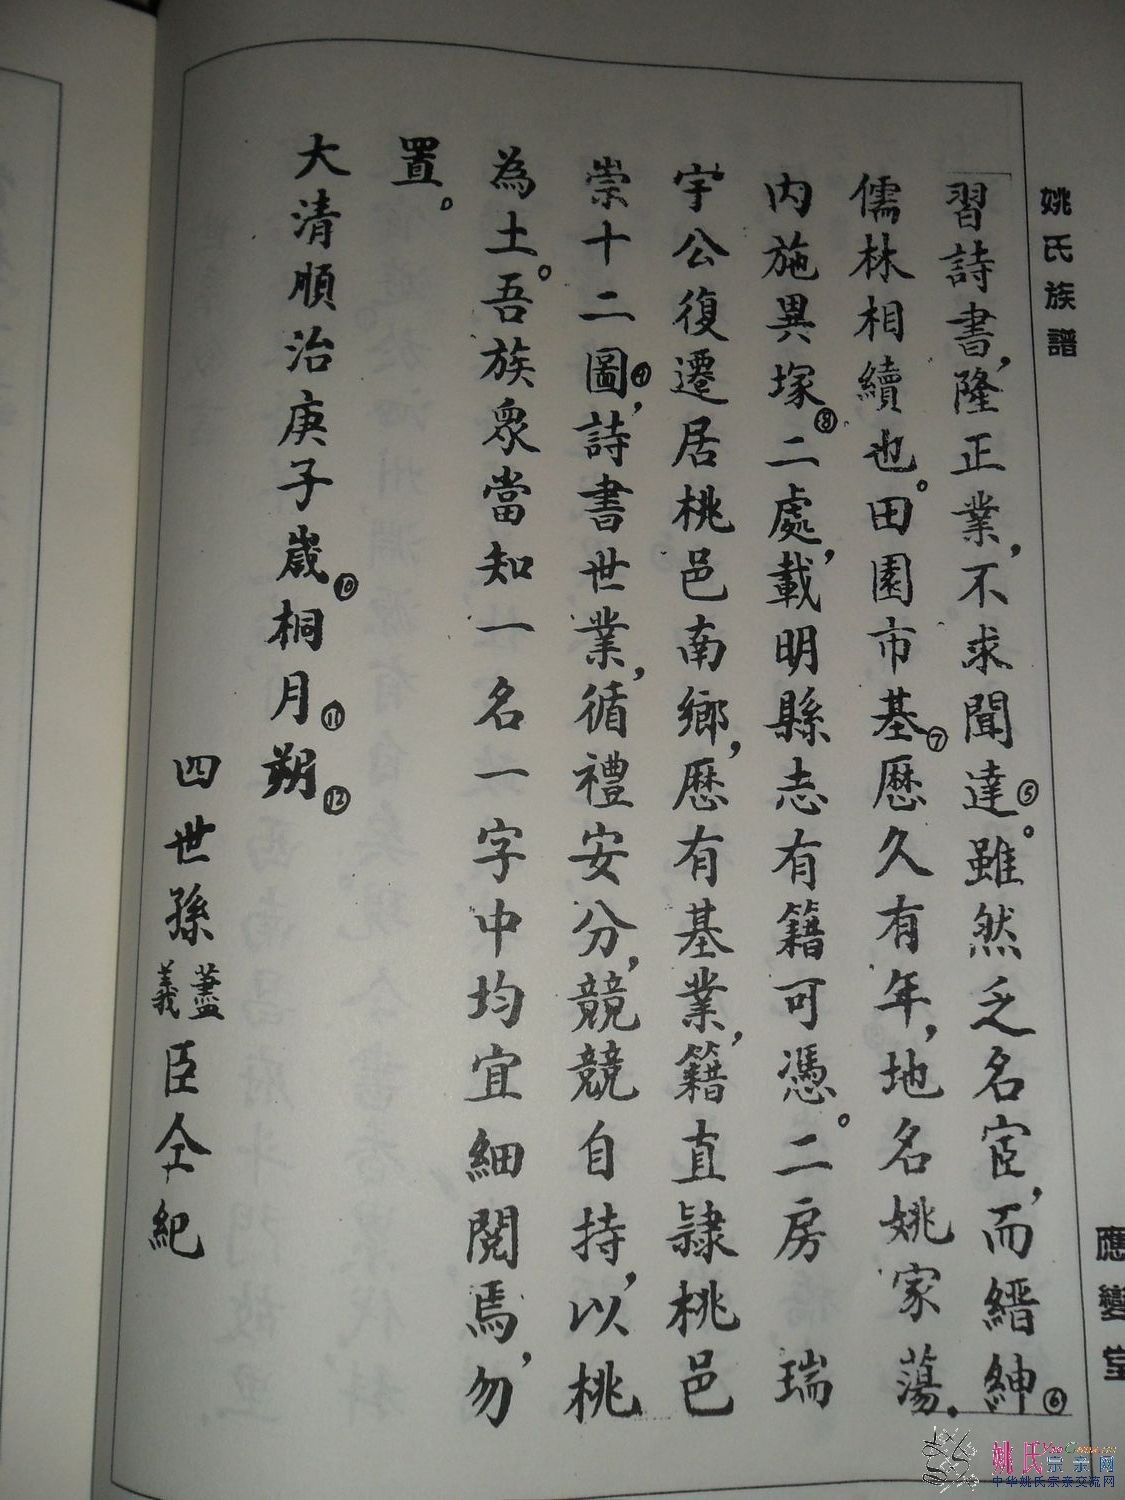 姚氏族譜
應變堂
習詩書，隆正業，不求聞達⑤。雖然乏名宦，而縉紳⑥
儒林相續也。田園市基⑦歷久有年，地名姚家蕩.
內施異塚⑧二處，載明縣志有籍可憑。二房瑞
宇公復遷居桃邑南鄉，歷有基業，籍直隸桃邑
崇十二圖⑨，詩書世業，循禮安分，競競自持，以桃
為土。吾族眾當知一名一字中均宜細閱焉，勿
置。
大清順治庚子歲⑩桐月⑪朔⑫
四世孫藎義臣仝紀
姚氏宗亲网
中华姚氏宗亲交流网